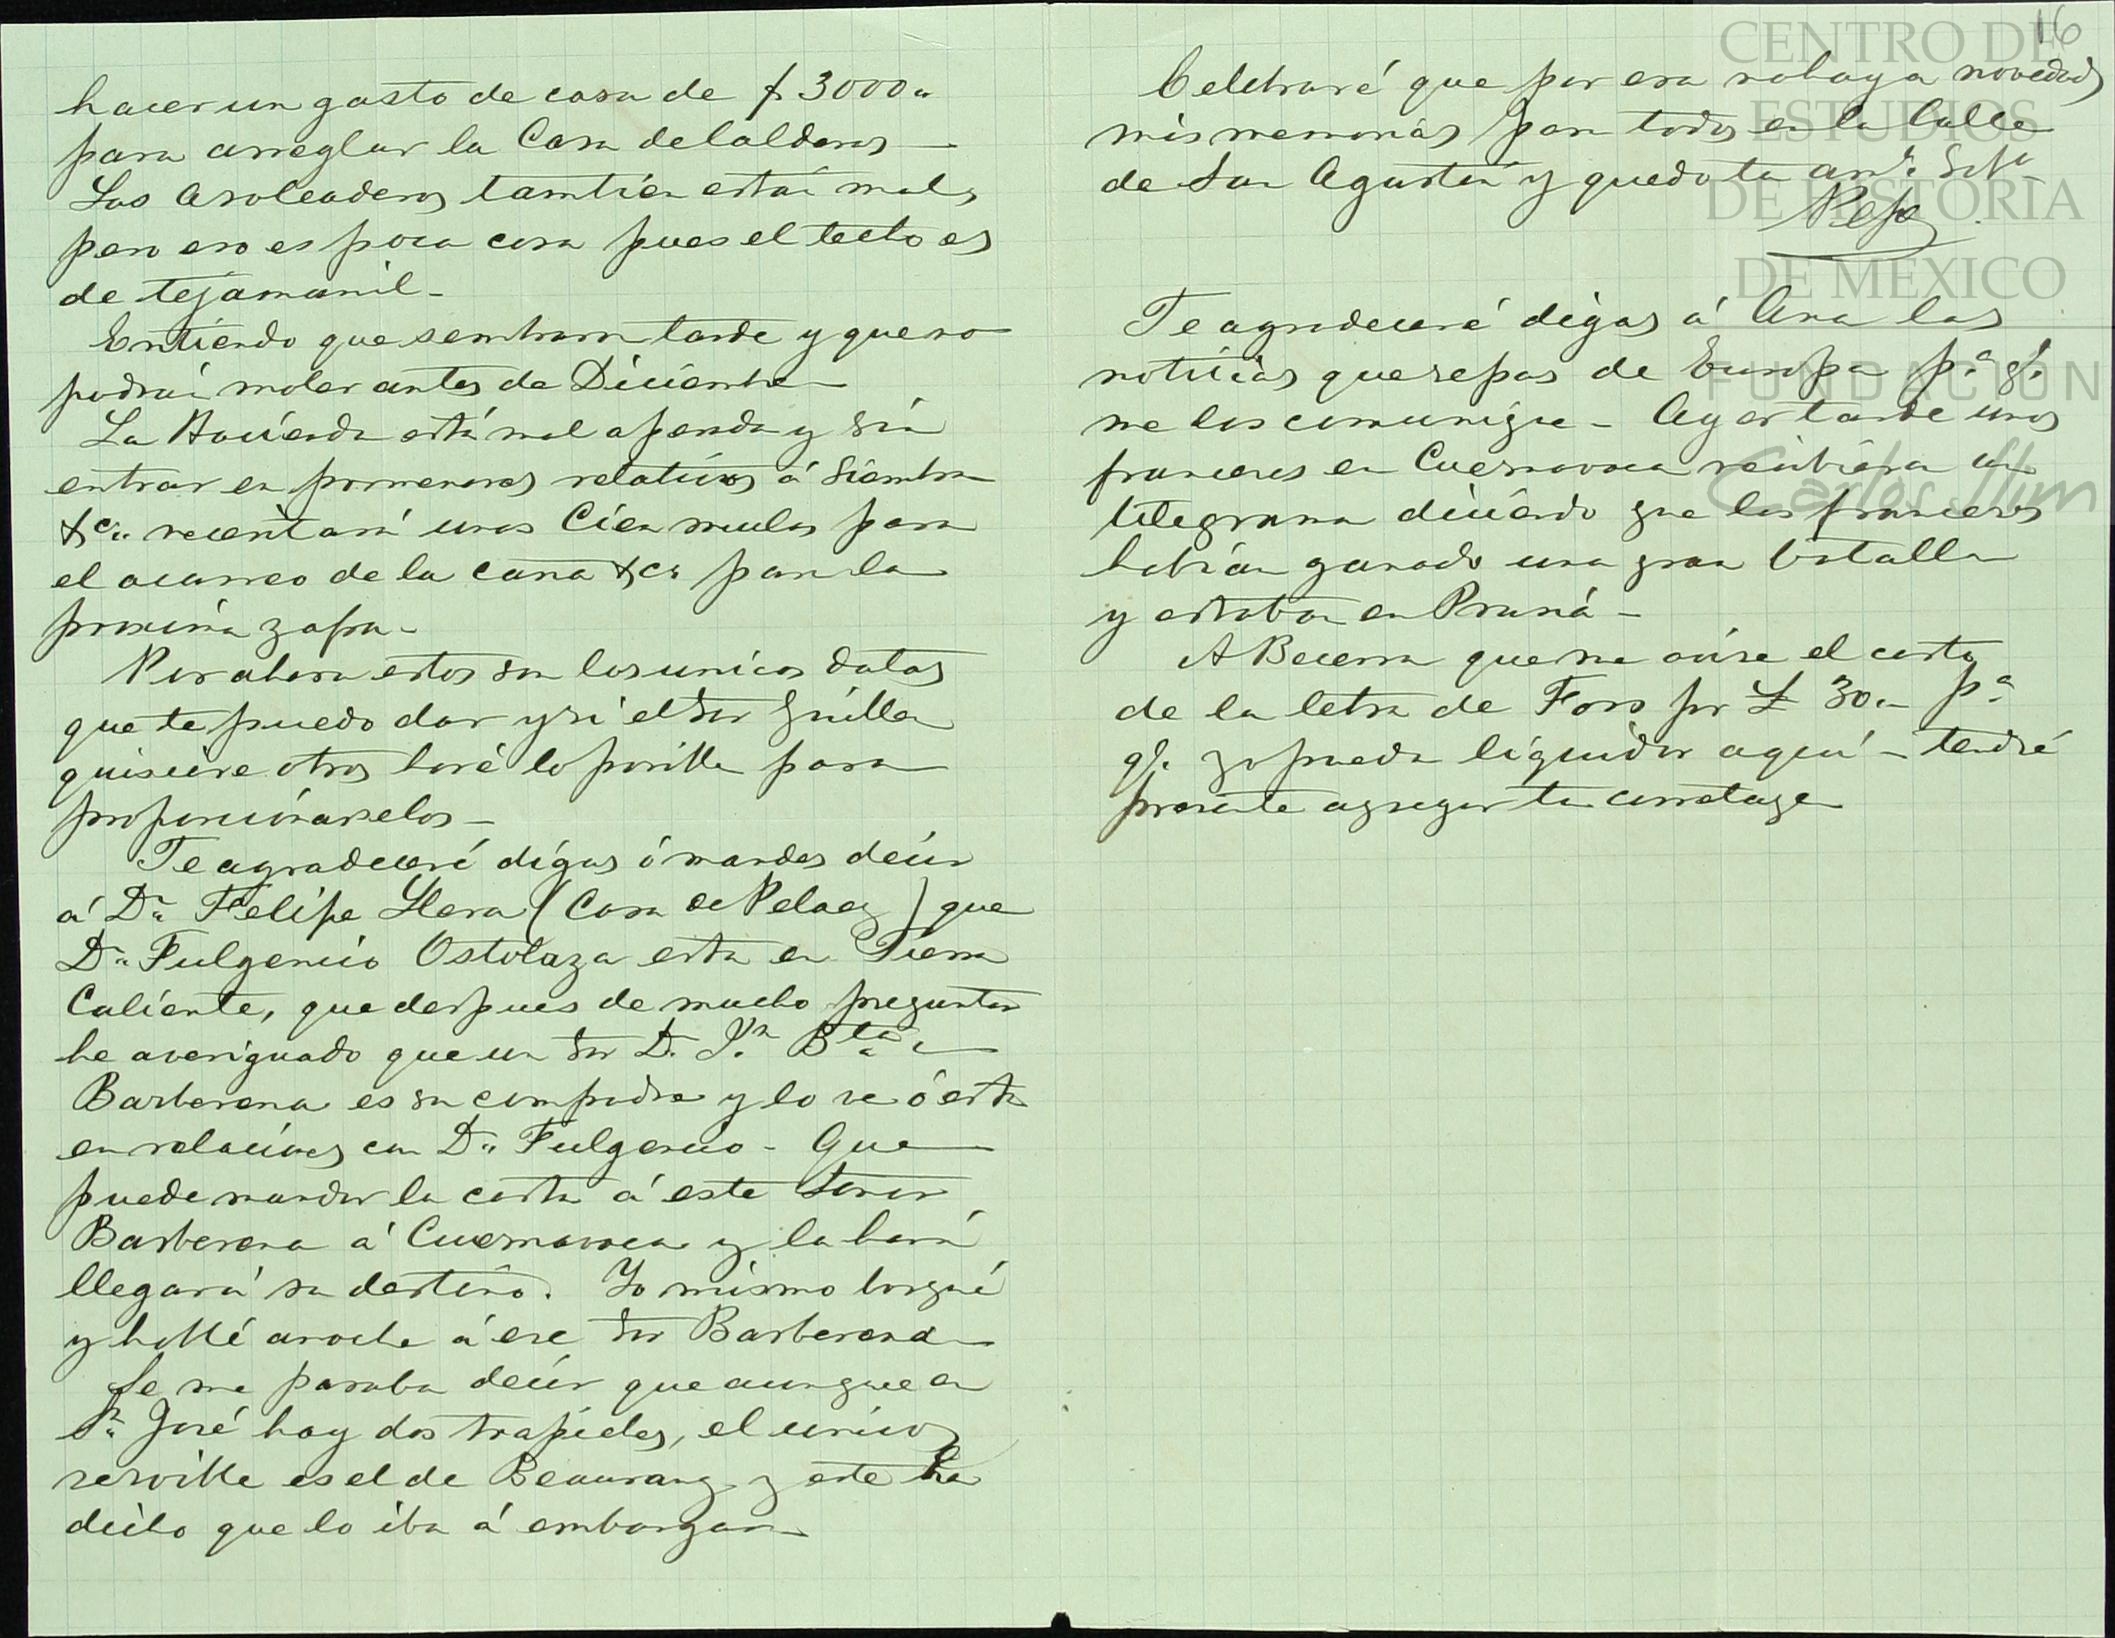 hacer un gasto de casa de $ 3000"
para arreglar la Casa de Calderas
Los Asoleaderos tambien están mal,
pero eso es poca cosa pues el techo es
de tejamanil -
Entiendo que sembraron tarde y que no
podrán moler antes de Diciembre -
La Hacienda está mal aperada y sin
entrar en pormenores relativos á siembra
&c" necesitará unas Cien mulas para
el acarreo de la caña &c" para la
proxima zafra -
Por ahora estos son los unicos datos
que te puedo dar y si el Sor
quisiere otros haré lo posible para
proporcionarselos -
Te agradeceré digas ó mandes decir
á Dn Felipe Llera (Casa de Pelaez) que
Dn Fulgencio Ostolaza esta en Tierra
Caliente, que despues de mucho preguntar
he averiguado que un Sor D. Jn Bta
Barberena es su compadre y lo ve ó está
en relaciones con Dn Fulgencio - Que
puede mandar la carta á este Señor
Barberena á Cuernavaca y la hará
llegar á su destino. Yo mismo busqué
y hablé anoche á ese Sor Barberena
Se me pasaba decir que aunque en
Sn José hay dos trapiches, el unico
servible es el de Beaurang y este ha
dicho que lo iba á embargar -
16
Celebraré que por esa no haya novedad,
mis memorias para todos en la Calle
de San Agustin y quedo tu
Pepe
Te agradeceré digas á Ana las
noticias que sepas de Europa pa. q.
me las comunique - Ayer tarde unos
franceses en Cuernavaca recibieron un
telegrama diciendo que los franceses
habían ganado una gran batalla
y estaban en Prusiá -
A Becerra que me avise el costo
de la letra de Foro por £ 30" pa
q. yo pueda liquidar aquí - tendré
presente agregar tu corretage
CENTRO DE
ESTUDIOS
DE HISTORIA
DE MEXICO
FUNDACIÓN
Carlos Slim